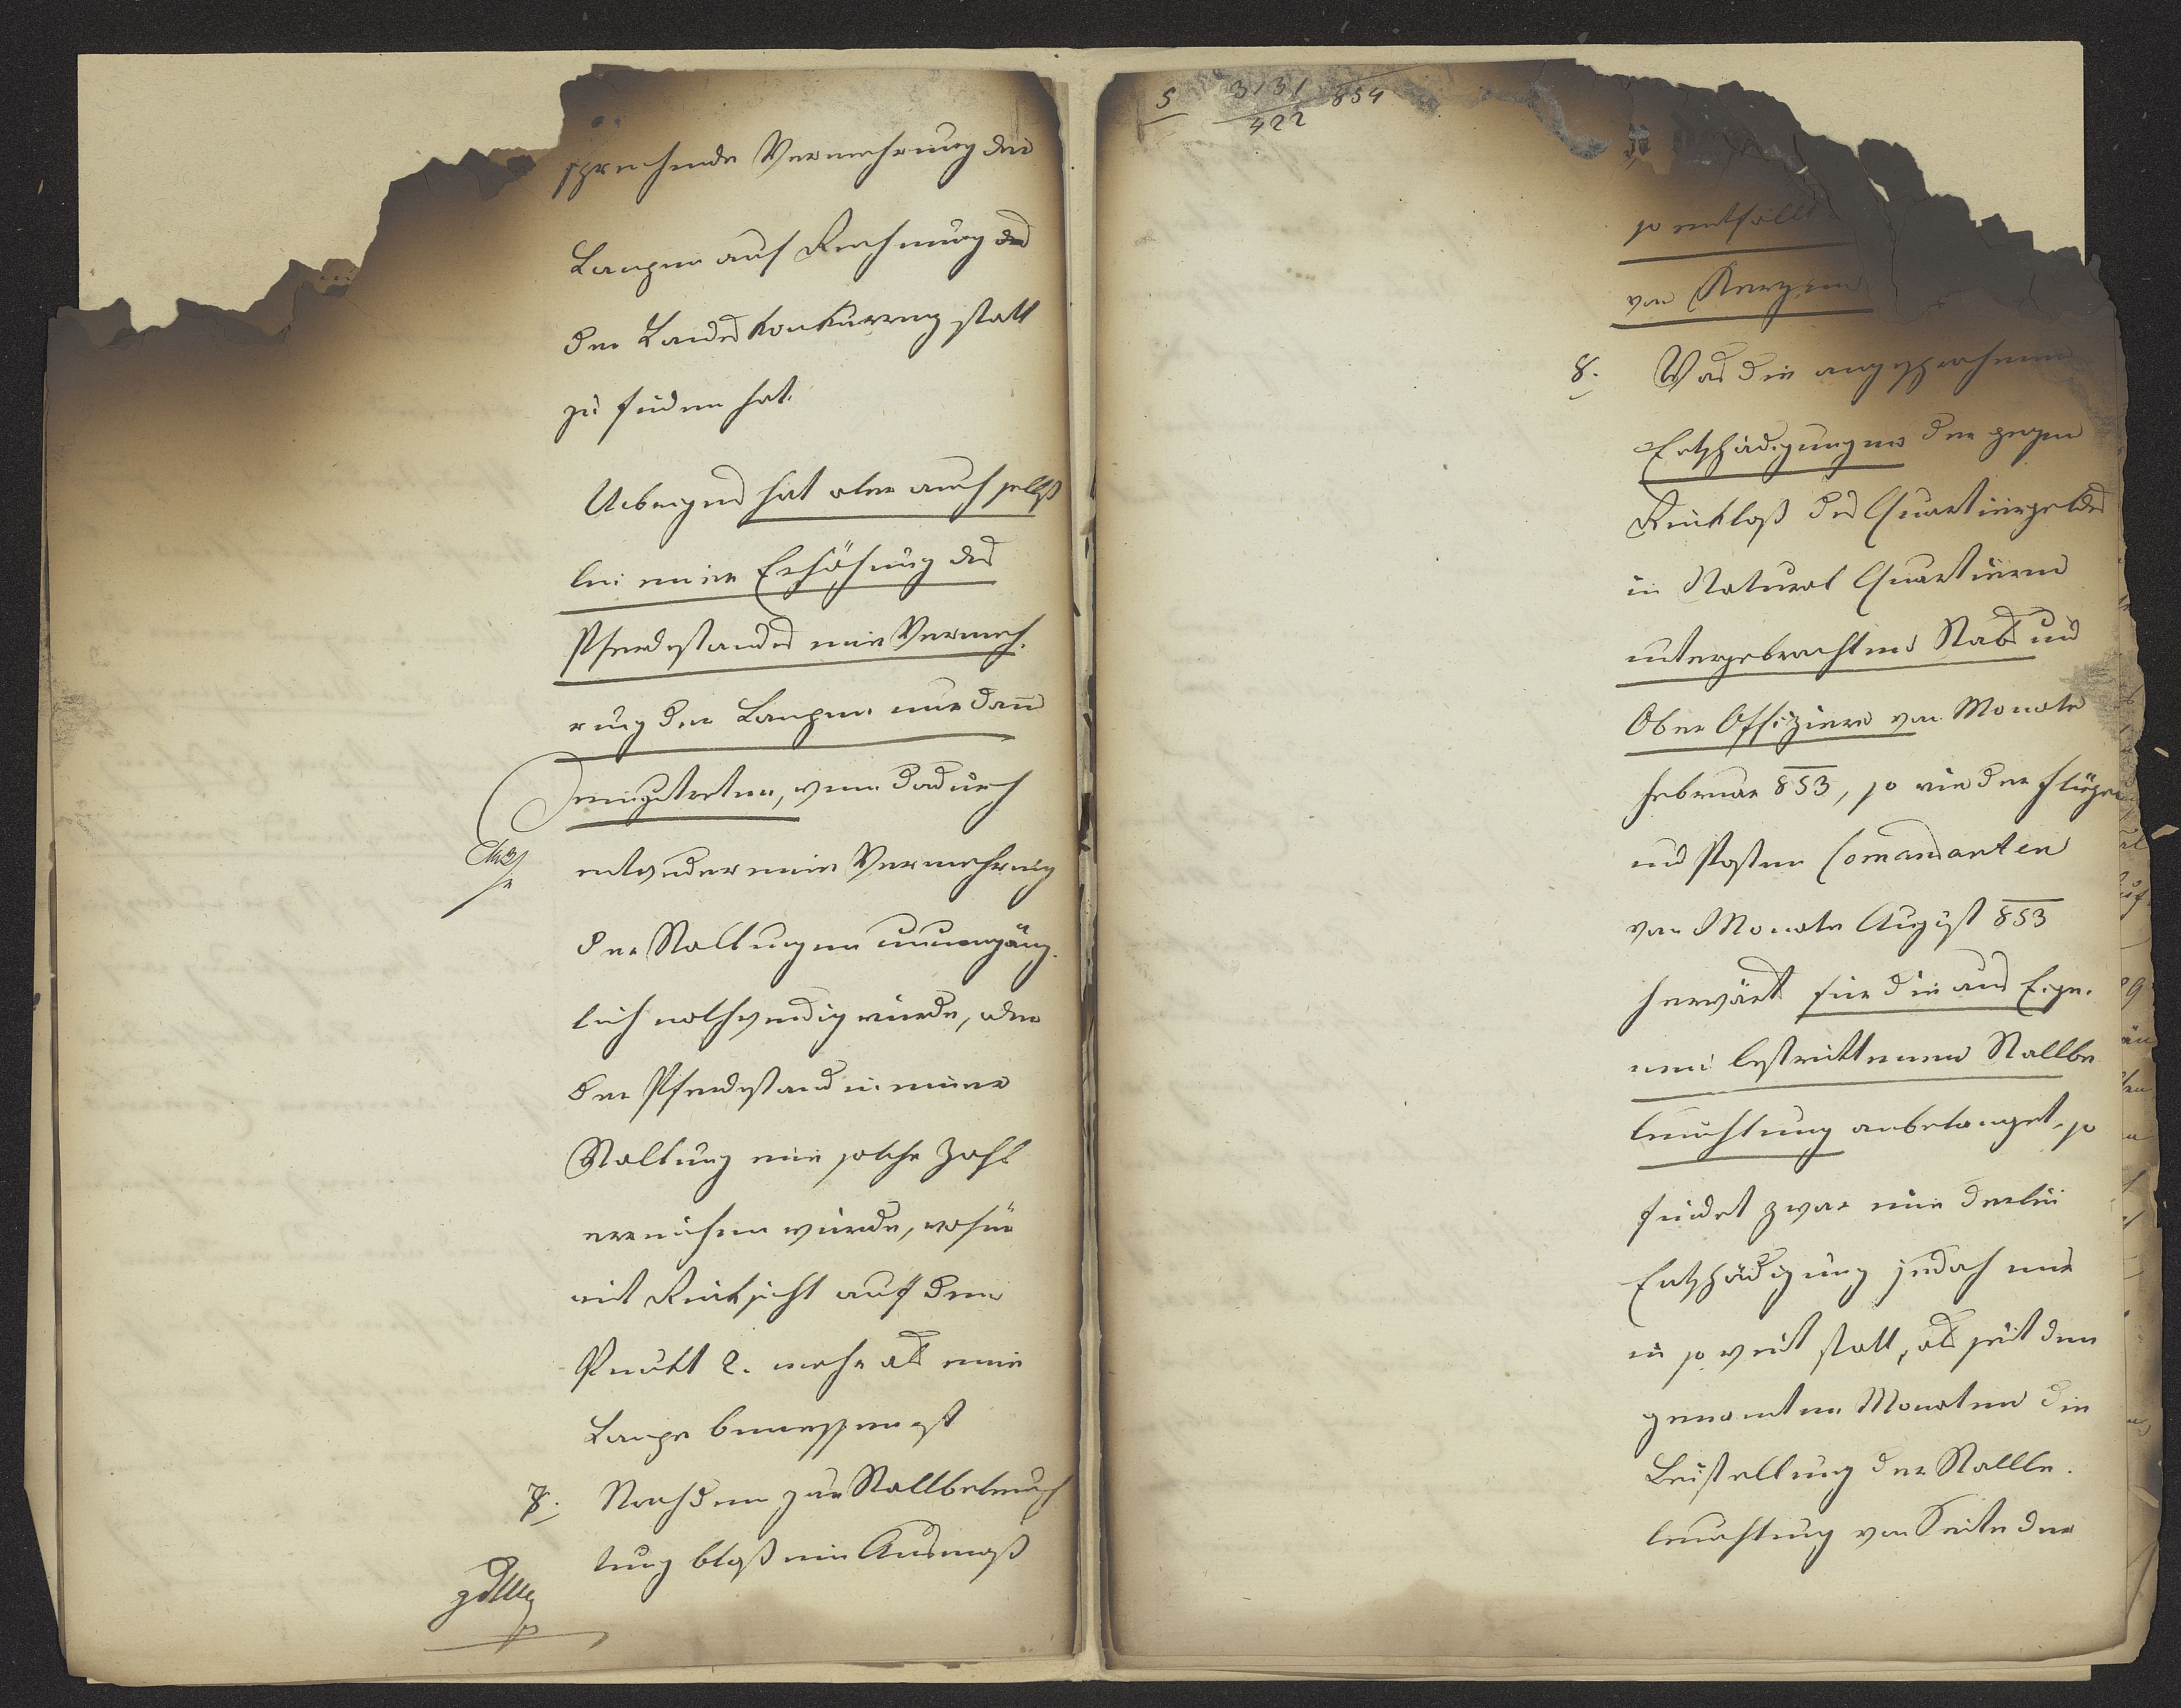 sprechende Vermehrung der
Lampen auf Rechnung des
der Landeskonkurrenz statt
zu finden hat.
Uebrigens hat aber auch selbst
bei einer Erhöhung des
Pferdestandes eine Vermeh-
rung der Lampen nur dann
einzutreten, wenn dadurch
entweder eine Vermehrung
der Stallungen unumgäng-
lich nothwendig würde, oder
der Pferdestand in einer
Stallung eine solche Zahl
erreichen würde, wofür
mit Rücksicht auf den
Punkt 2. mehr als eine
Lampe bemessen ist
7. Nachdem zur Stallbeleuch
tung bloß ein Ausmaß
5 3131/422 854
so entfällt
von Kerzen
8. Was die angesprochenen
Entschädigungen der gegen
Rücklaß des Quartiergeldes
in Natural Quartieren
untergebrachten Stabs und
Ober Offiziere vom Monate
Februar 853, so wie der Flügel
und Posten Comandanten
vom Monate August 853
herwärts für die aus Eige-
nem bestrittenen Stallbe
leuchtung anbelangt, so
findet zwar eine derlei
Entschädigung jedoch nur
in so weit statt, als seit den
genannten Monaten die
Beistellung der Stallbe-
leuchtung von Seite der